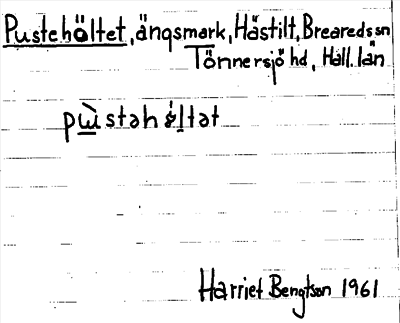 Pustehöltet, ängsmark, Hästilt, Breareds sn
Tönnersjö hd, Hall. län
Harriet Bengtson 1961